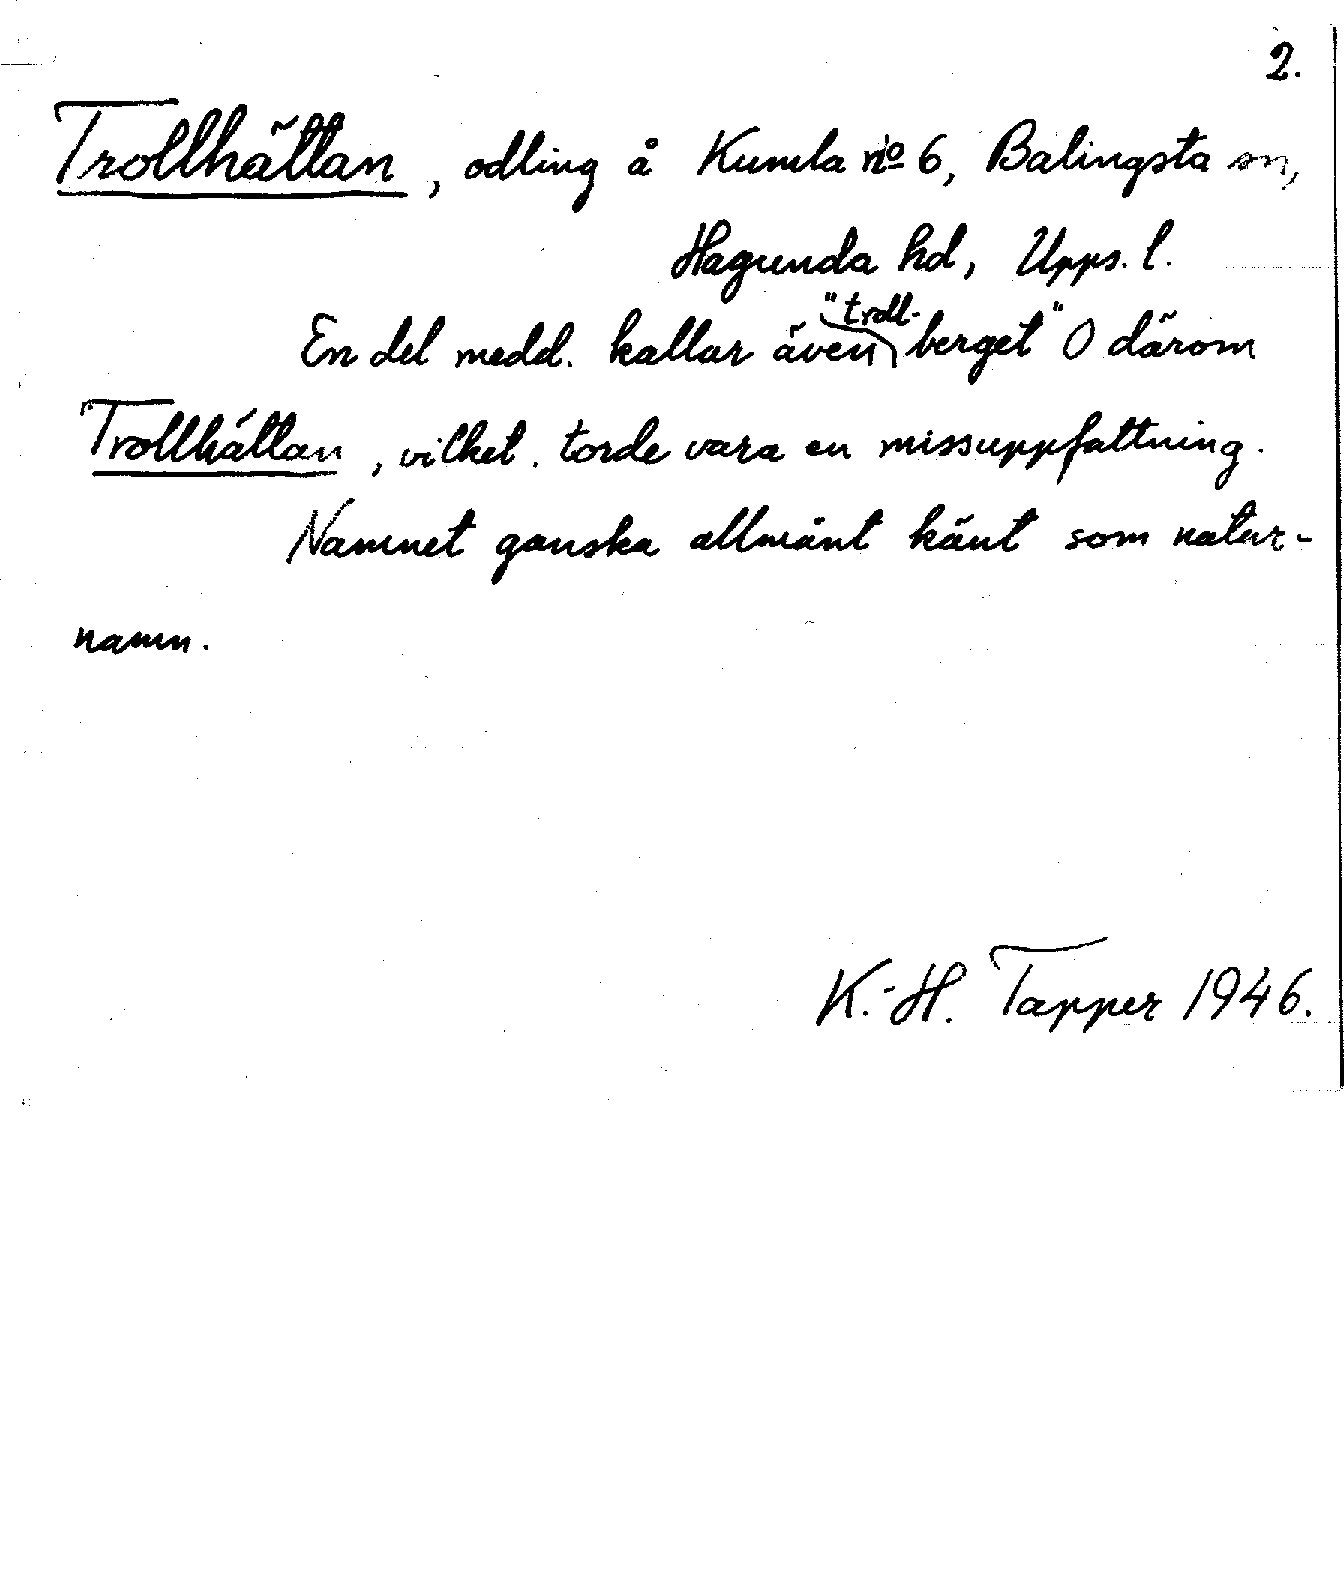 2.
Trollhättan, odling å Kumla no 6, Balingsta sn,
Hagunda hd, Upps. l.
En del medd. kallar även "troll-berget" O därom
Trollhättan, vilket torde vara en missuppfattning.
Namnet ganska allmänt känt som natur-
namn.
K.-H. Tapper 1946.